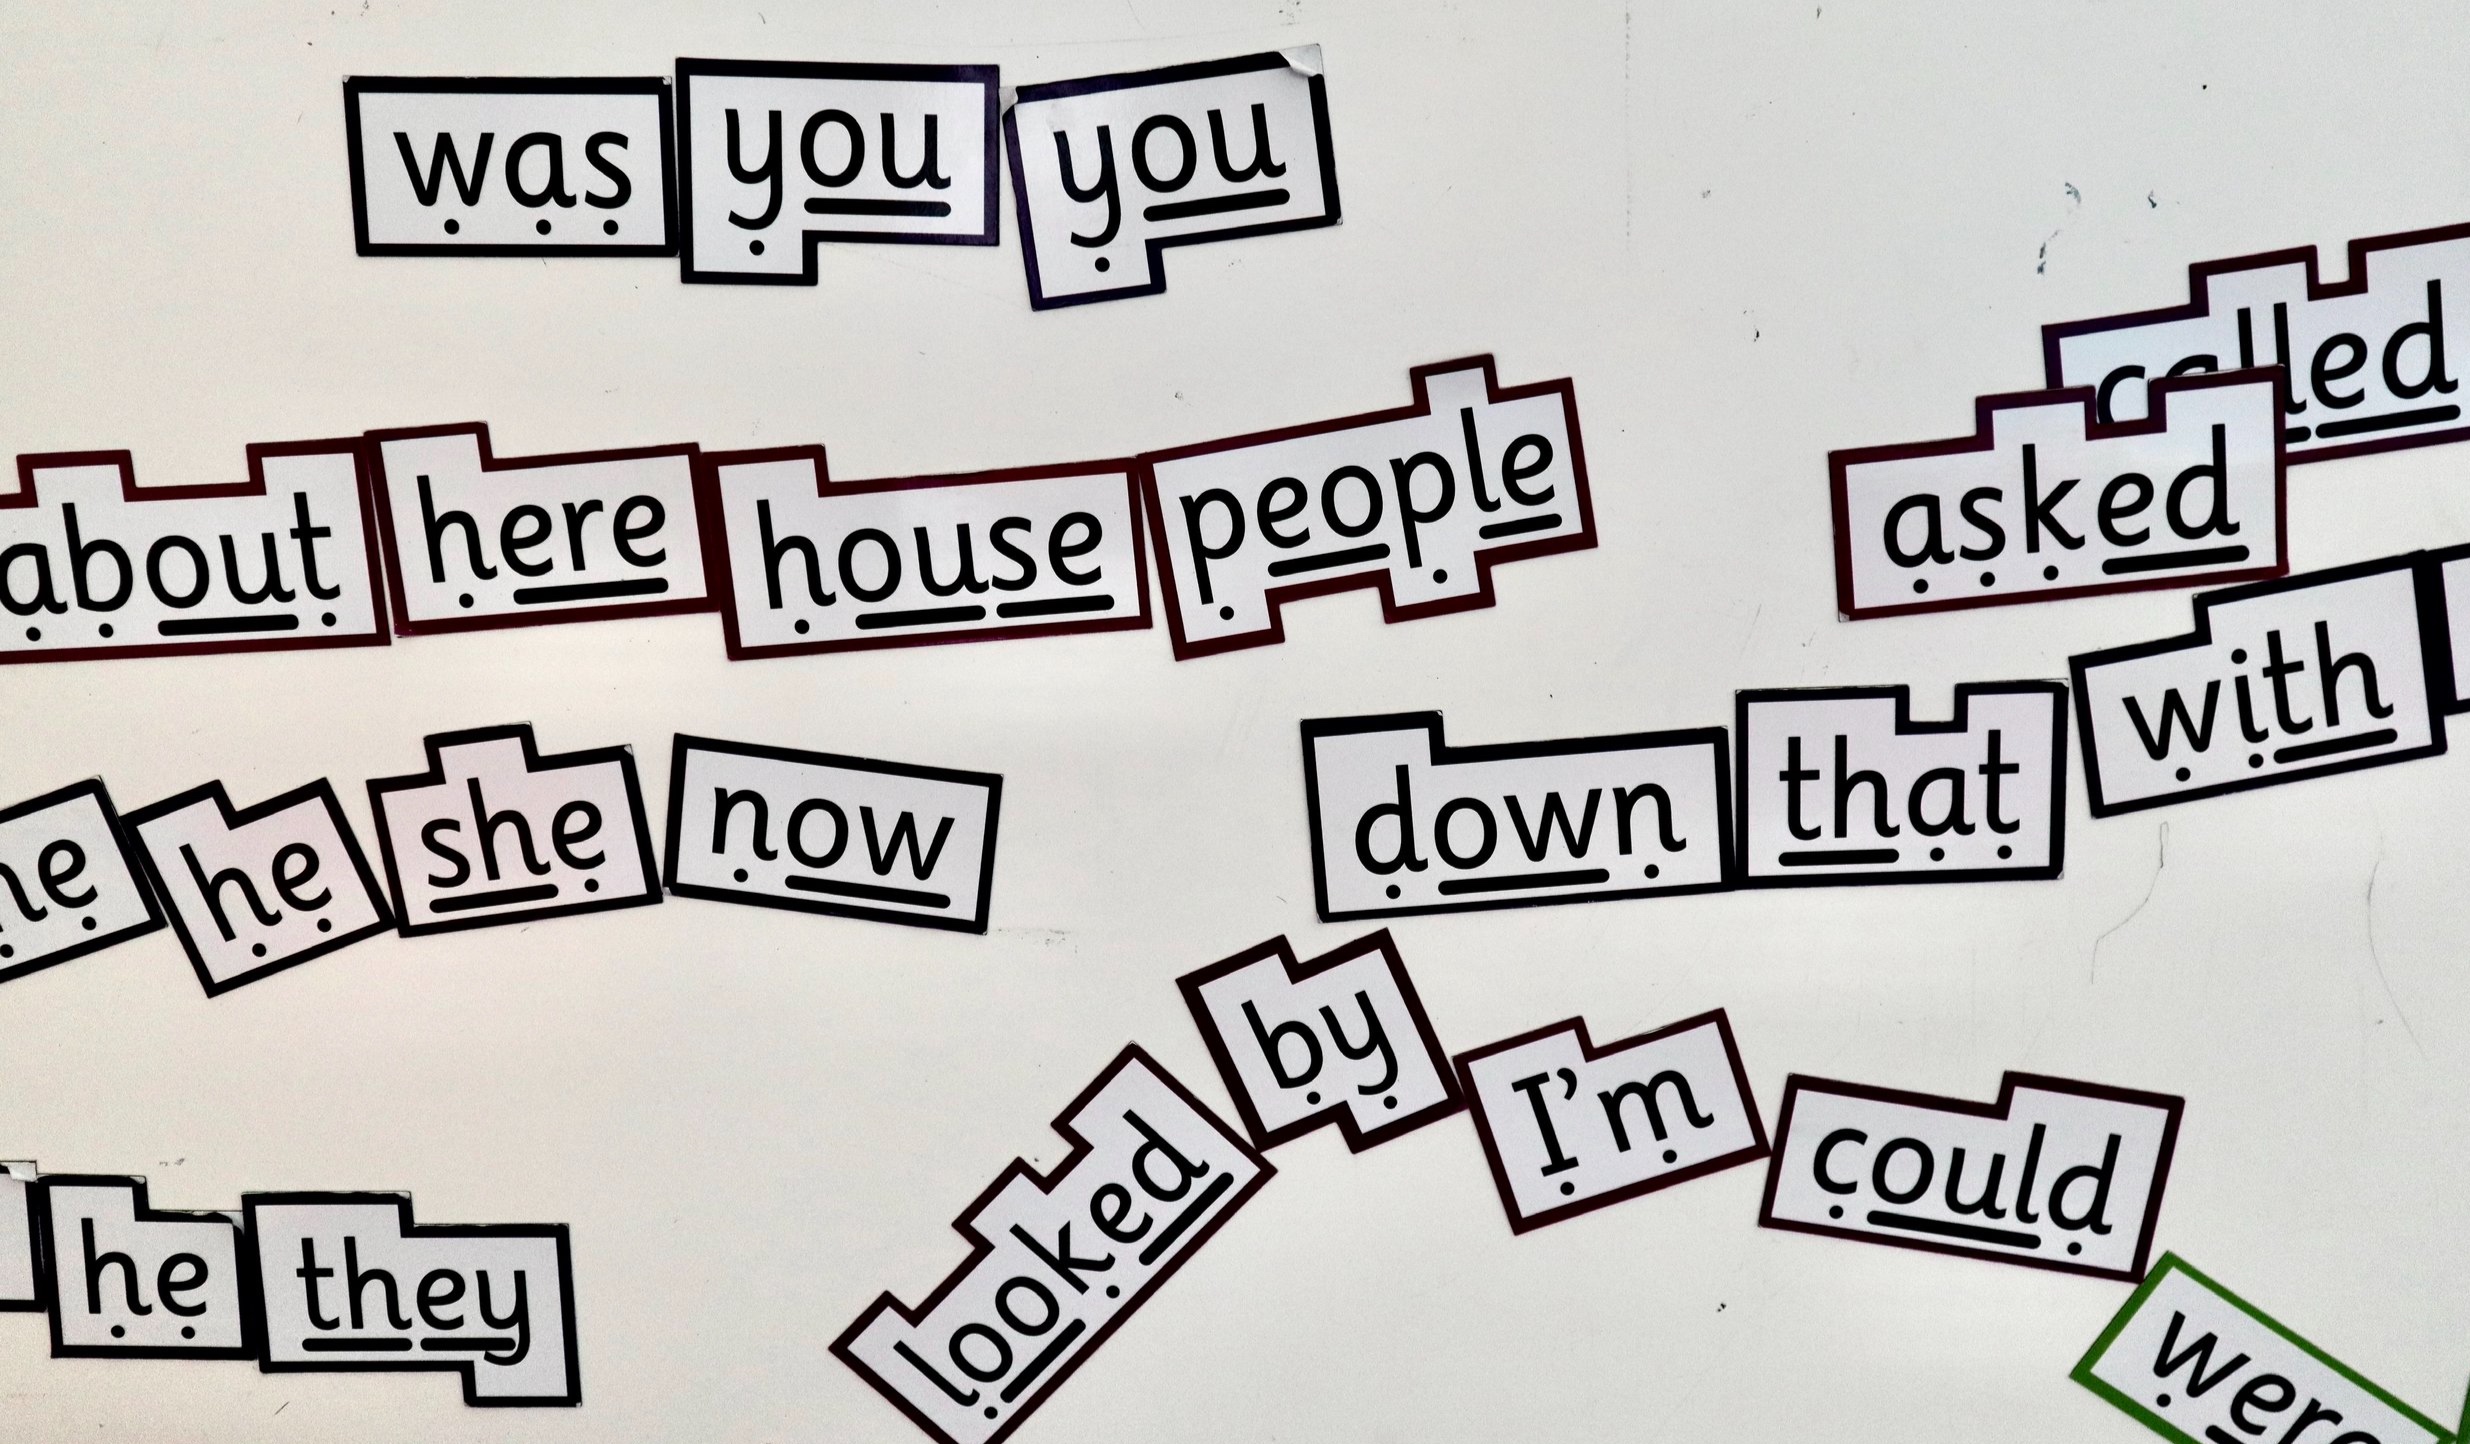 was you you
called
asked
about here house people
with
down that
he she now
by
I'm
could
looked
he they
were